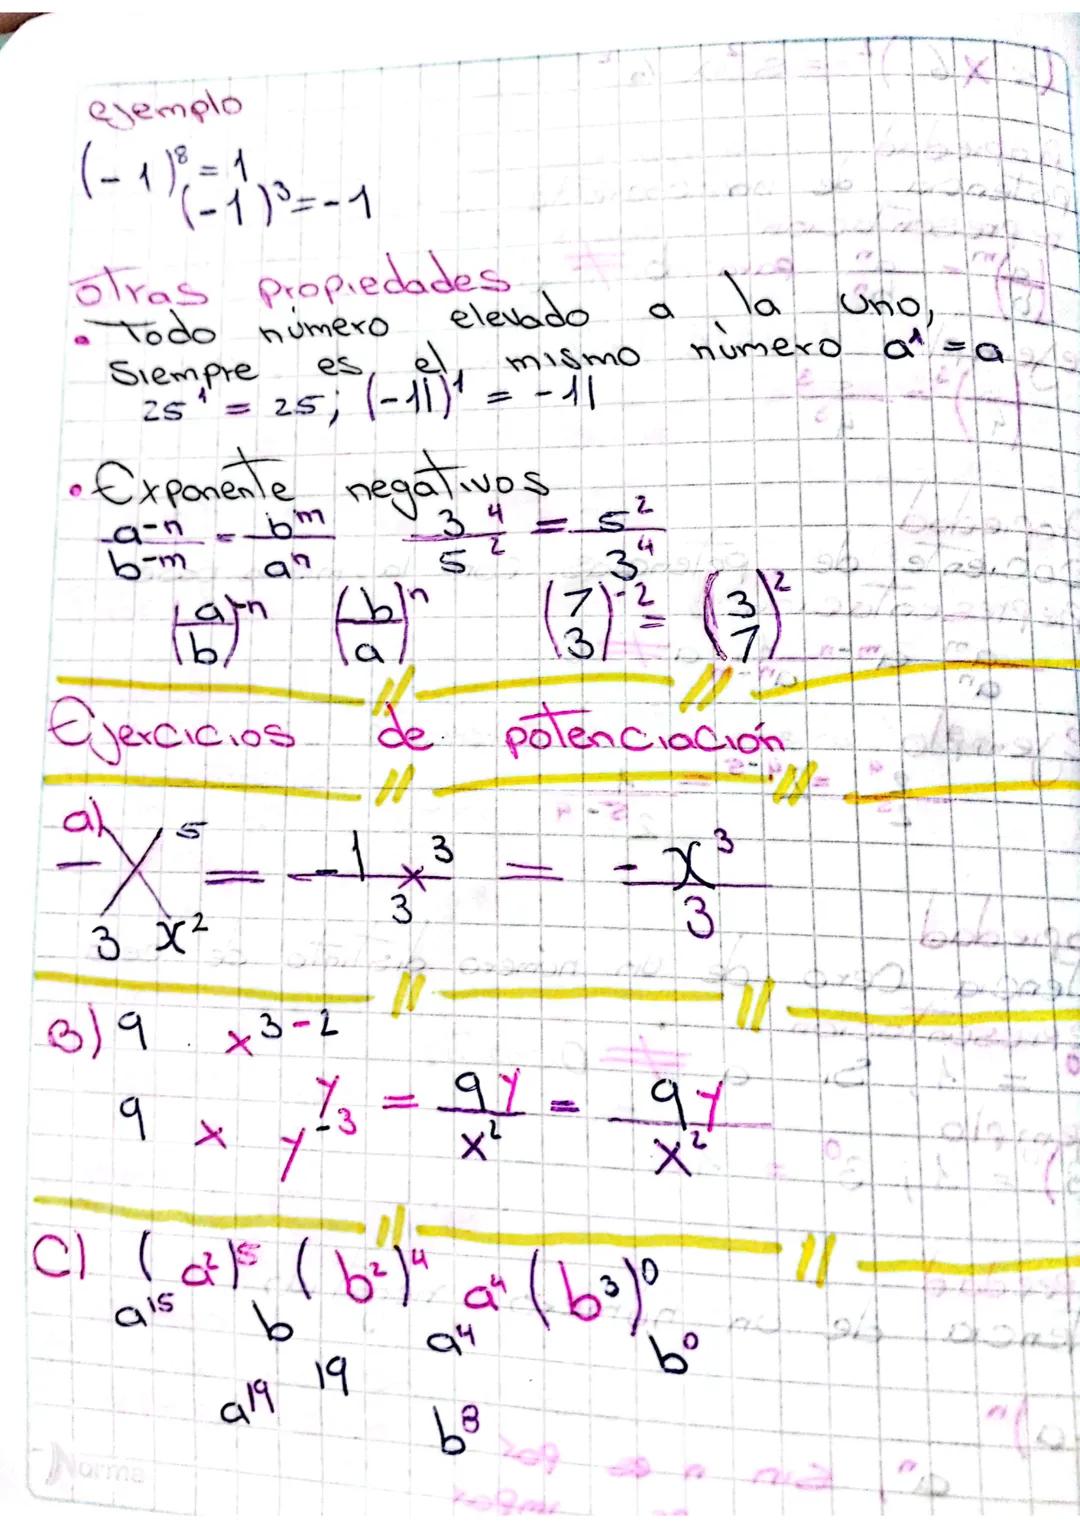 ejemplo
(-1)⁸ = 1
(-1)³ = -1
otras propiedades
• Todo número elevado a la uno,
Siempre es el mismo número a¹ = a
25¹ = 25; (-11)¹ = -11
• Exponente negativos
a-n/b-m = bm/an 3⁴/5² = 5²/3⁴
(a/b)-n (b/a)n (7/3)-2 = (3/7)²
Ejercicios de potenciación
a) -x⁵/3x² = -1x³/3 = -x³/3
B) 9 x³⁻²
9 x y/y-3 = 9y/x² = 9y/x²
C) (a²)⁵ (b²)⁴ a⁴ (b³)⁰
a¹⁵ b a⁴ b⁰
a¹⁹ 19 b⁸
Norma